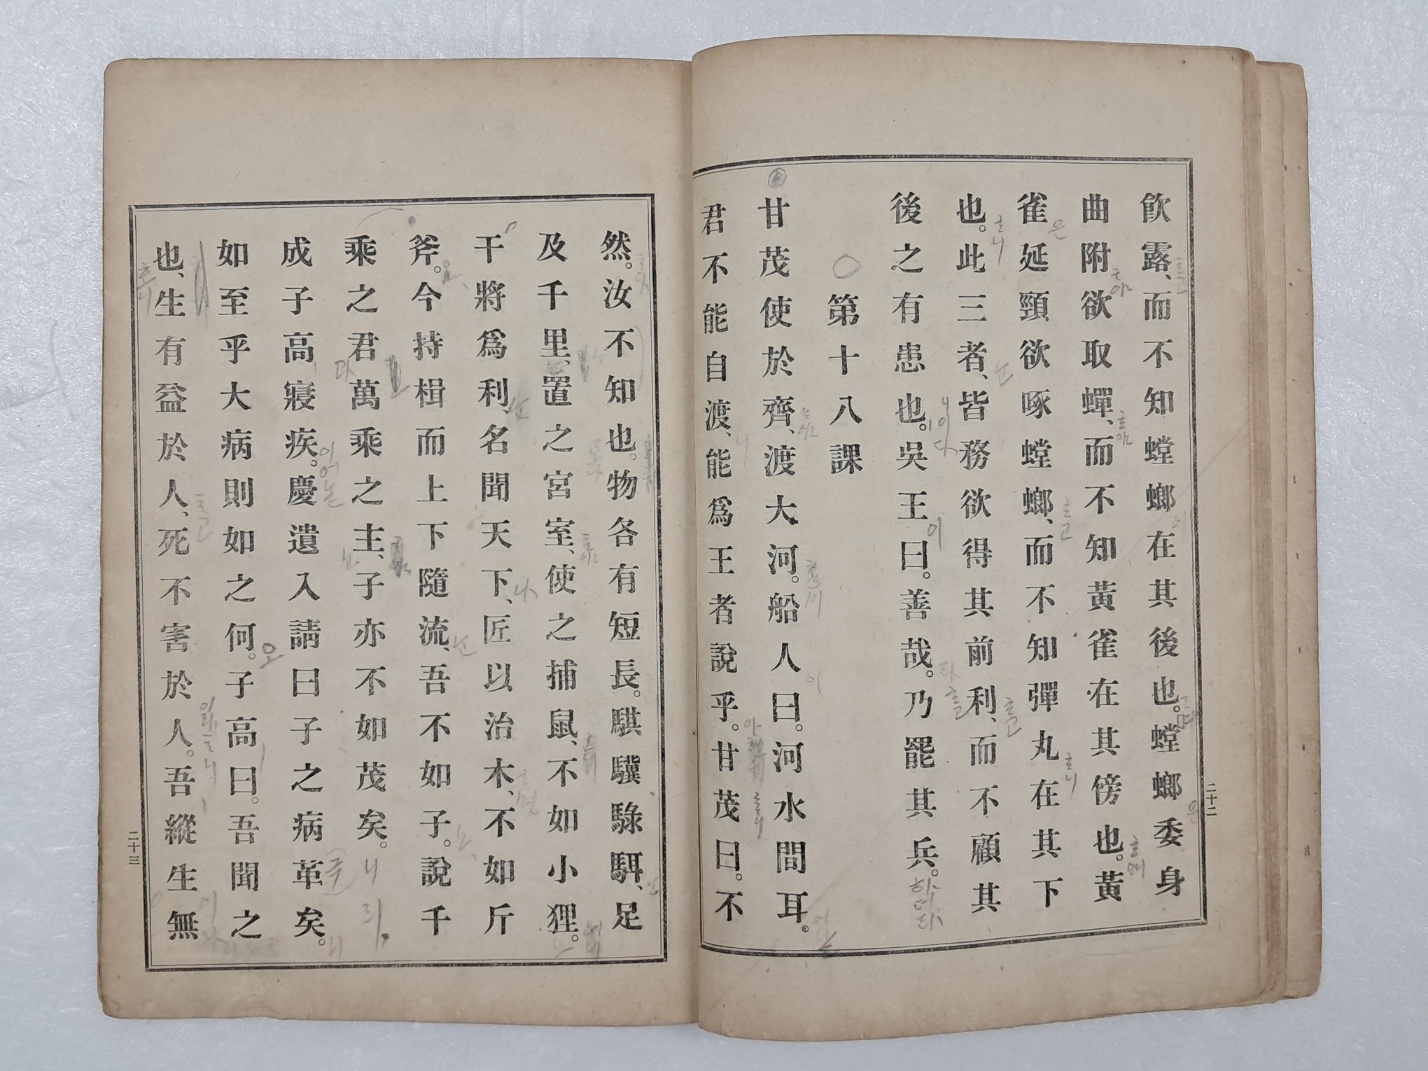 飮露、而不知螳螂在其後也。螳螂委身
曲附欲取蟬、而不知黃雀在其傍也。黃
雀延頸欲啄螳螂、而不知彈丸在其下
也。此三者、皆務欲得其前利、而不顧其
後之有患也。吳王曰。善哉。乃罷其兵。
○第十八課
甘茂使於齊、渡大河。船人曰。河水間耳。
君不能自渡、能爲王者說乎。甘茂曰。不
二十二
然。汝不知也。物各有短長。騏驥騄駬、足
及千里、置之宮室、使之捕鼠、不如小狸。
干將爲利、名聞天下、匠以治木、不如斤
斧。今持楫而上下隨流、吾不如子。說千
乘之君萬乘之主、子亦不如茂矣。
成子高寢疾。慶遺入請曰子之病革矣。
如至乎大病則如之何。子高曰。吾聞之
也、生有益於人、死不害於人。吾縱生無
二十三